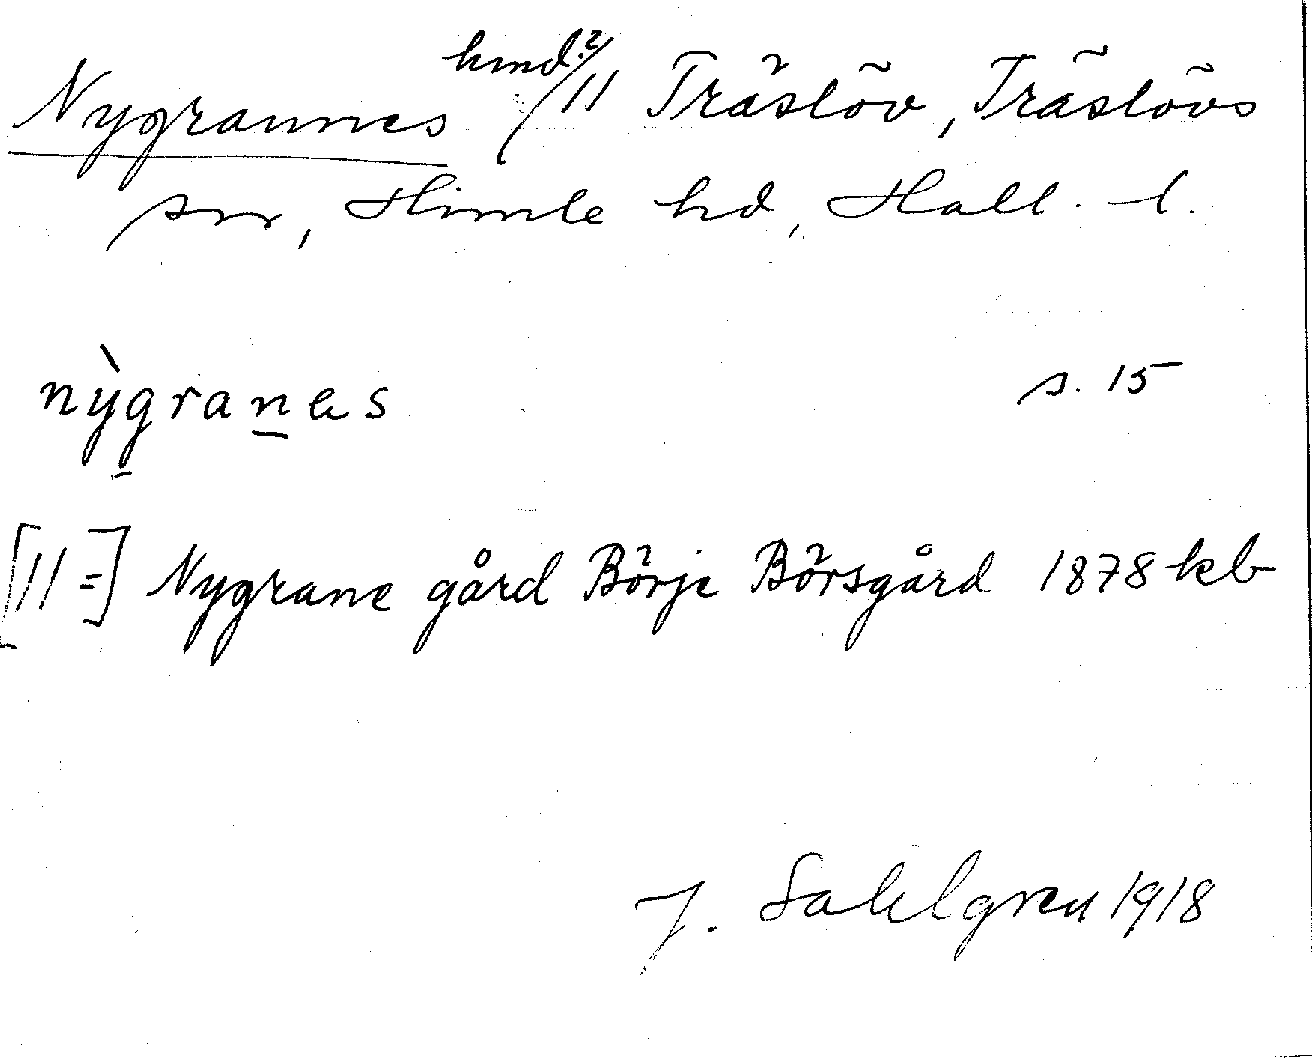 Nygrannes hmd.?/11 Träslöv, Träslövs
sn, Himle hd, Hall. l.
nỳgranas s. 15
[11 =] Nygrane gård Börje Börsgård 1878 kb
J. Sahlgren 1918